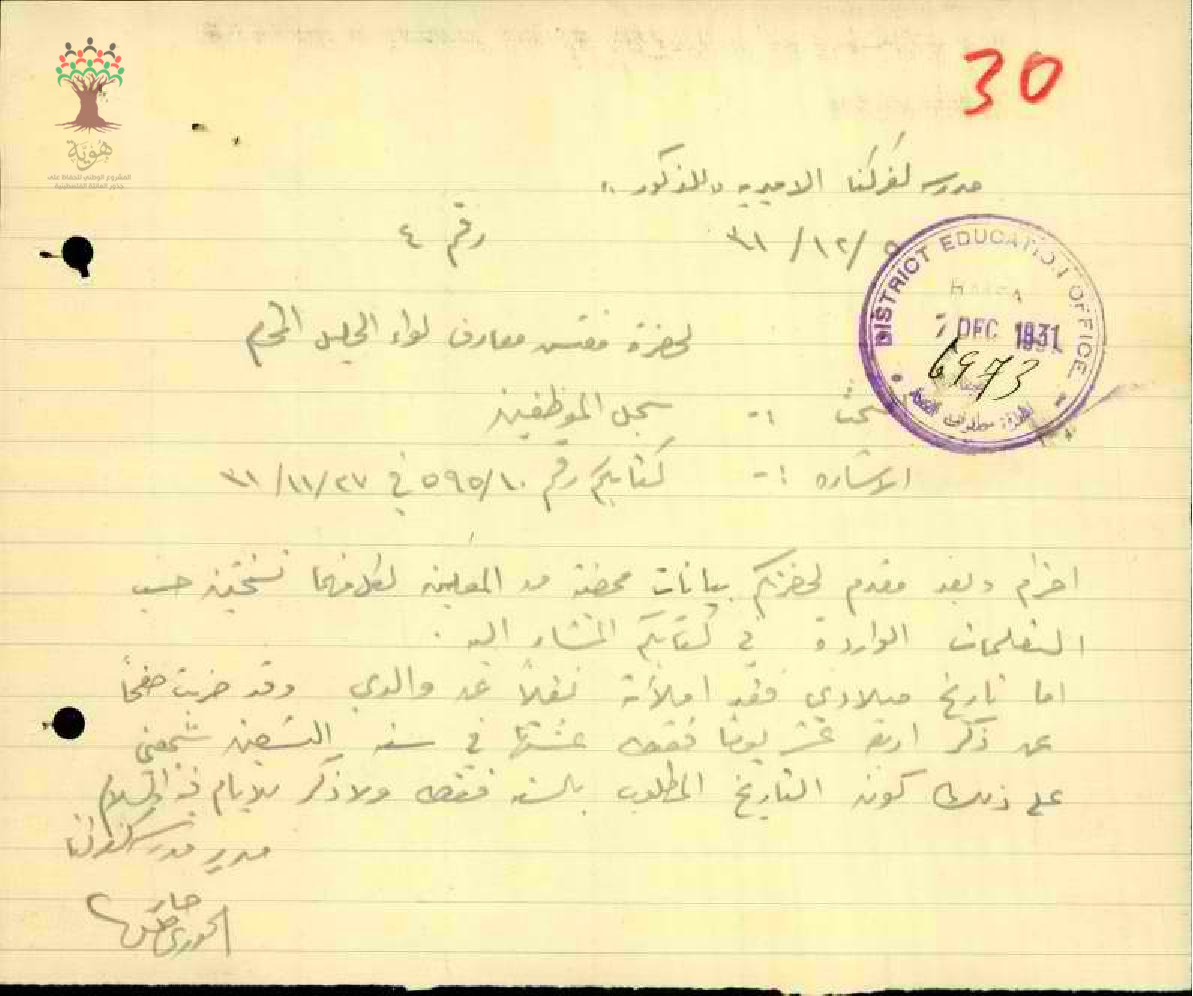 30
هوية
المشروع الوطني للحفاظ على
جذور العائلة الفلسطينية
مدرسة كفركنا الاميريه "للذكور"
٥/١٢/٣١ رقم ٤
DISTRICT EDUCATION OFFICE
HAIFA
7 DEC 1931
6973
لحضرة مفتش معارف لواء الجليل المحترم
بحث :- سجل الموظفين
الاشاره :- كتابكم رقم ٥٩٥/١٠ في ٢٧/١١/٣١
احترام وبعد مقدم لحضرتكم بيانات ممضية من المعلمين لكل منهما نسختين حسب
التعليمات الواردة في كتابكم المشار اليه.
اما تاريخ ميلادي فقد املأته نقلاً عن والدي وقد ضربت صفحاً
عن ذكر اربعة عشر يوماً فقط عشتها في سنة التسعين شجعني
على ذلك كون التاريخ المطلوب بالسنة فقط ولا ذكر للايام
مدير مدرسة كفركنا
الخوري